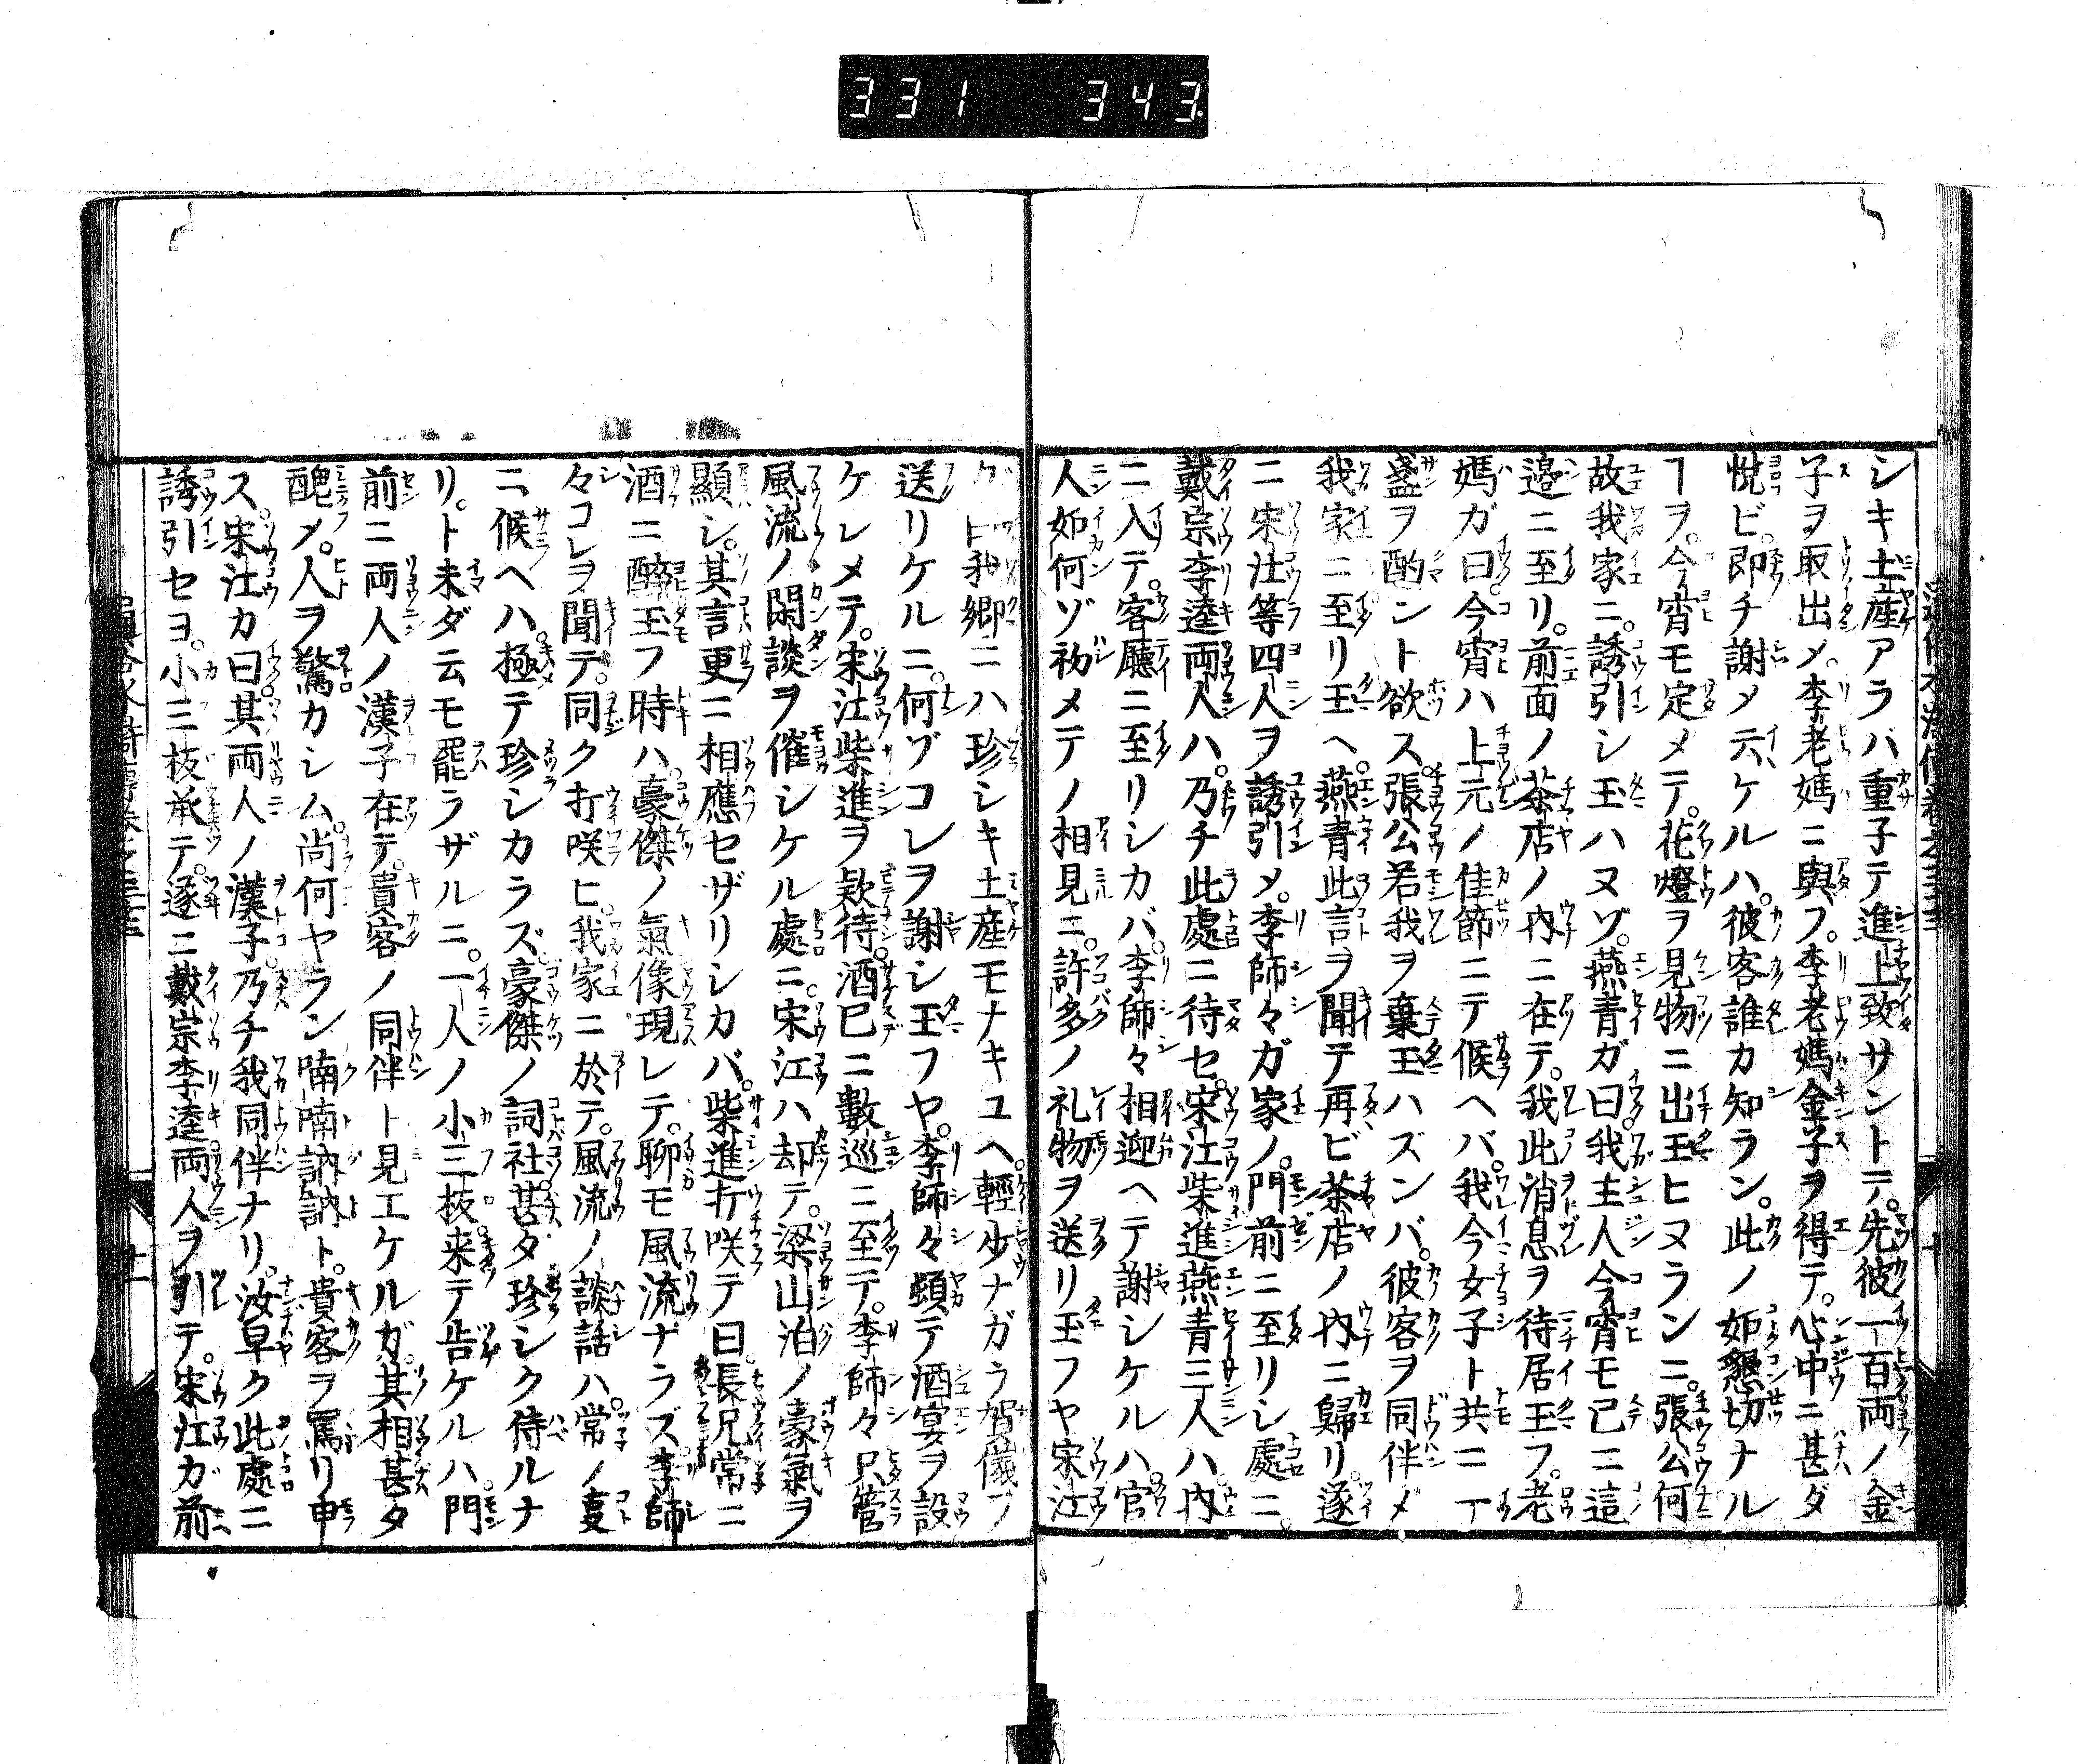 331 343
シキ土産アラバ重子テ進上致サントテ。先彼一百両ノ金
子ヲ取出メ。李老媽ニ與フ。李老媽金子ヲ得テ。心中ニ甚ダ
悅ビ。即チ謝メ云ケルハ。彼客誰カ知ラン。此ノ如懇切ナル
ヿヲ。今宵モ定メテ。花燈ヲ見物ニ出玉ヒヌランニ。張公何
故我家ニ。誘引シ玉ハヌゾ。燕青ガ曰。我主人今宵モ已ニ這
邉ニ至リ。前面ノ茶店ノ内ニ在テ。我此消息ヲ待居玉フ。老
媽ガ曰。今宵ハ上元ノ佳節ニテ候ヘバ。我今女子ト共ニ一
盞ヲ酌ント欲ス。張公若我ヲ棄玉ハズンバ。彼客ヲ同伴メ
我家ニ至リ玉ヘ。燕青此言ヲ聞テ再ビ茶店ノ内ニ歸リ。遂
ニ宋江等四人ヲ誘引メ。李師々ガ家ノ。門前ニ至リシ處ニ。
戴宗李逵両人ハ。乃チ此處ニ待セ。宋江柴進燕青三人ハ内
ニ入テ。客廳ニ至リシカバ。李師々相迎ヘテ謝シケルハ。官
人如何ゾ初メテノ相見ニ。許多ノ礼物ヲ送リ玉フヤ宋江
ガ曰我郷ニハ珍シキ土産モナキユヘ。輕少ナガラ賀儀ヲ
送リケルニ。何ゾコレヲ謝シ玉フヤ。李師々頓テ酒宴ヲ設
ケレメテ。宋江柴進ヲ欵待。酒已ニ數巡ニ至テ。李師々只管
風流ノ閑談ヲ催シケル處ニ。宋江ハ却テ。梁山泊ノ豪氣ヲ
顯シ。其言更ニ相應セザリシカバ。柴進打咲テ曰。長兄常ニ
酒ニ醉玉フ時ハ。豪傑ノ氣像現レテ。聊モ風流ナラズ李師
々コレヲ聞テ。同ク打咲ヒ。我家ニ於テ。風流ノ談話ハ。常ノ叓
ニ候ヘハ。極テ珍シカラズ。豪傑ノ詞社。甚タ珍シク侍ルナ
リ。ト未ダ云モ罷ラザルニ。一人ノ小三板。来テ告ケルハ。門
前ニ両人ノ漢子在テ。貴客ノ同伴ト見エケルガ。其相甚タ
醜メ。人ヲ驚カシム。尚何ヤラン喃喃訥訥ト。貴客ヲ罵リ申
ス。宋江カ曰。其両人ノ漢子。乃チ我同伴ナリ。汝早ク此處ニ
誘引セヨ。小三板承テ。遂ニ戴宗李逵両人ヲ引テ。宋江ガ前